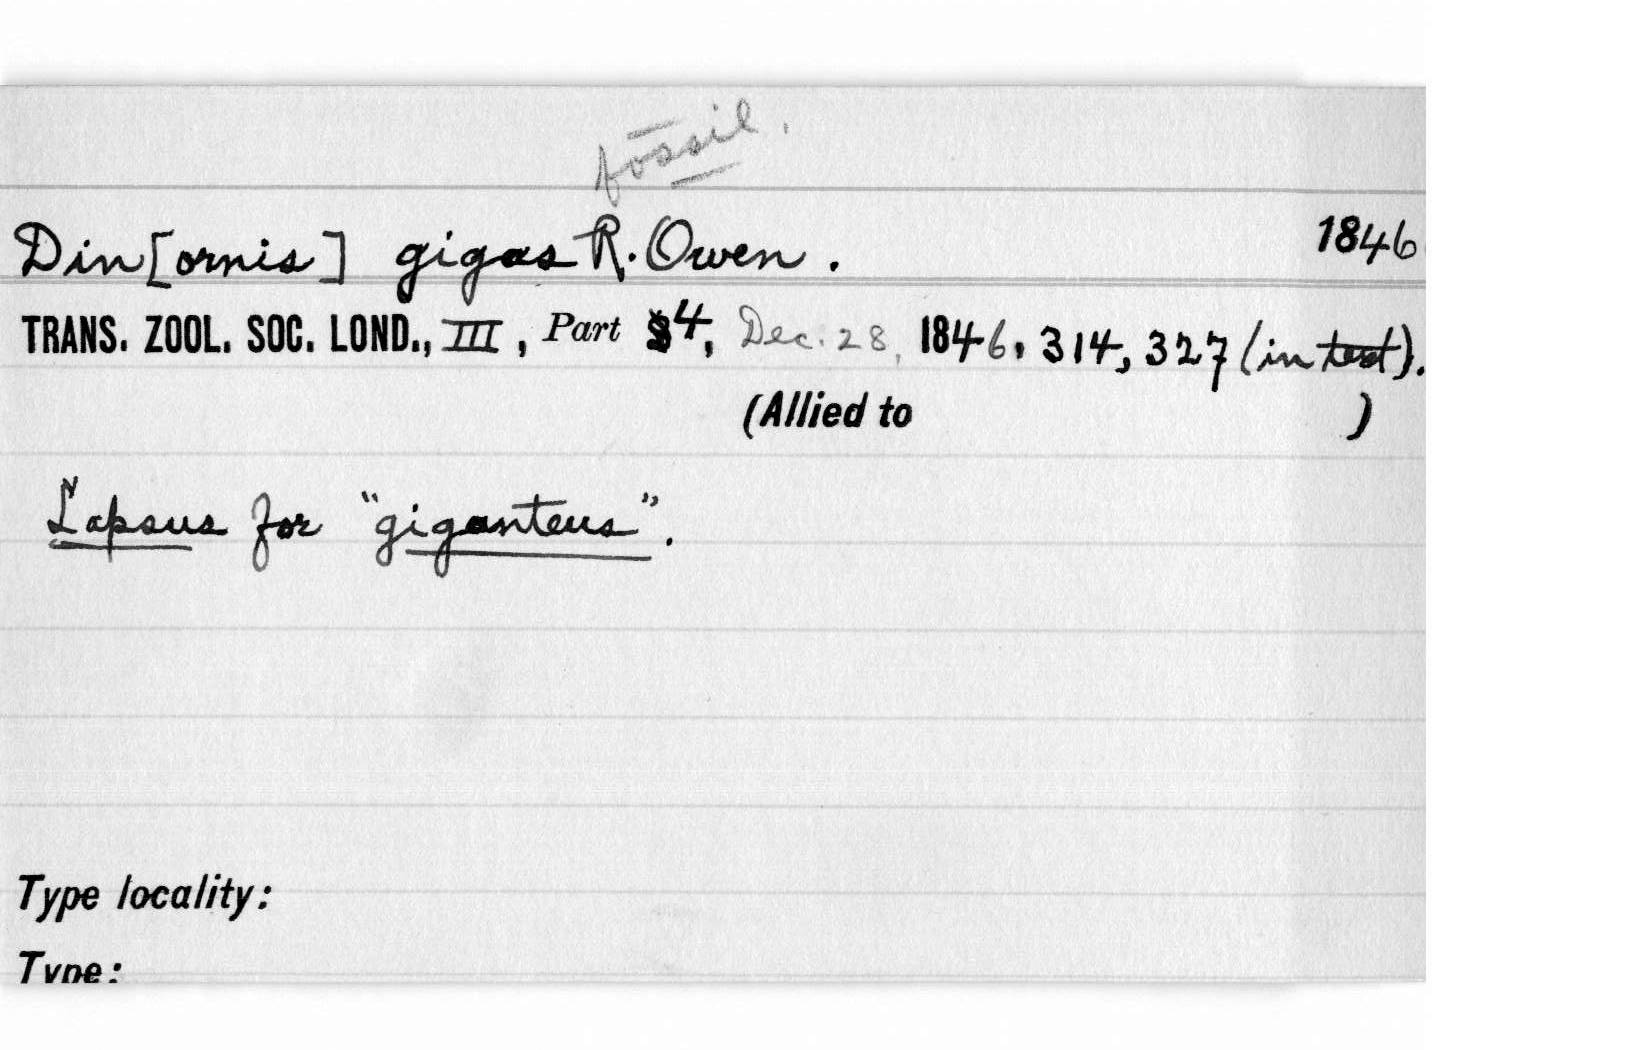 fossil.
Din[ornis] gigas R. Owen. 1846
TRANS. ZOOL. SOC. LOND., III, Part 4, Dec. 28, 1846, 314, 327 (in text).
(Allied to )
Lapsus for "giganteus".
Type locality:
Type: